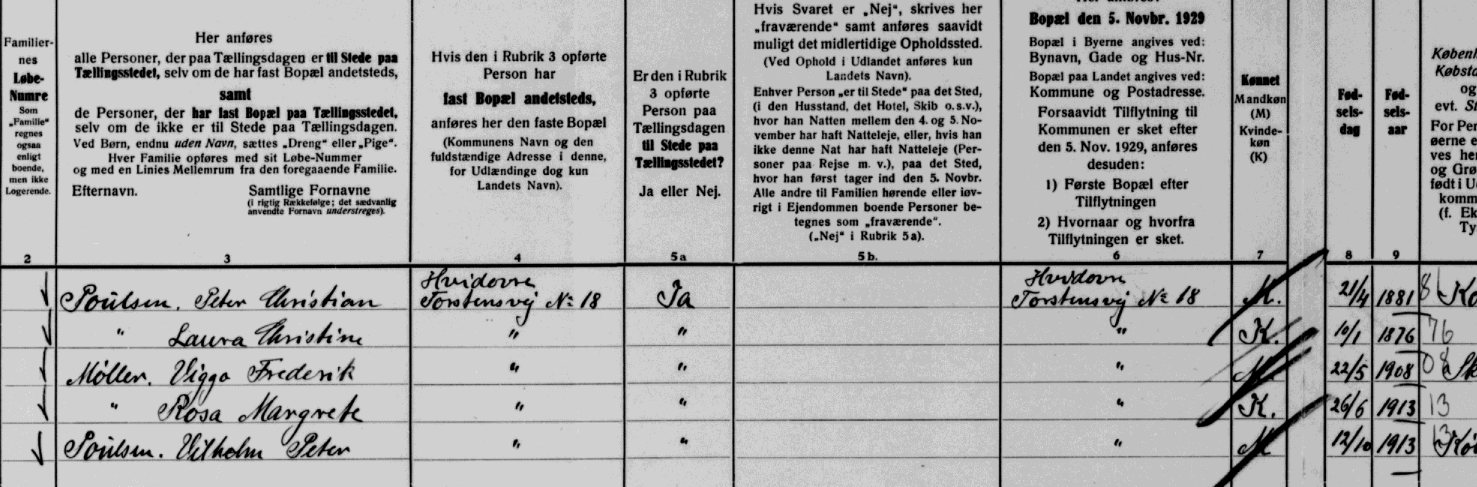 Familier-
nes
Løbe-
Numre
Som
„Familie“
regnes
ogsaa
enligt
boende,
men ikke
Logerende.
2
Her anføres
alle Personer, der paa Tællingsdagen er til Stede paa
Tællingsstedet, selv om de har fast Bopæl andetsteds,
samt
de Personer, der har fast Bopæl paa Tællingsstedet,
selv om de ikke er til Stede paa Tællingsdagen.
Ved Børn, endnu uden Navn, sættes „Dreng“ eller „Pige“.
Hver Familie opføres med sit Løbe-Nummer
og med en Linies Mellemrum fra den foregaaende Familie.
Efternavn. Samtlige Fornavne
(i rigtig Rækkefølge; det sædvanlig
anvendte Fornavn understreges).
3
Hvis den i Rubrik 3 opførte
Person har
fast Bopæl andetsteds,
anføres her den faste Bopæl
(Kommunens Navn og den
fuldstændige Adresse i denne,
for Udlændinge dog kun
Landets Navn).
4
Er den i Rubrik
3 opførte
Person paa
Tællingsdagen
til Stede paa
Tællingsstedet?
Ja eller Nej.
5a
Hvis Svaret er „Nej“, skrives her
„fraværende“ samt anføres saavidt
muligt det midlertidige Opholdssted.
(Ved Ophold i Udlandet anføres kun
Landets Navn).
Enhver Person „er til Stede“ paa det Sted,
(i den Husstand, det Hotel, Skib o.s.v.),
hvor han Natten mellem den 4. og 5. No-
vember har haft Natteleje, eller, hvis han
ikke denne Nat har haft Natteleje (Per-
soner paa Rejse m. v.), paa det Sted,
hvor han først tager ind den 5. Novbr.
Alle andre til Familien hørende eller iøv-
rigt i Ejendommen boende Personer be-
tegnes som „fraværende“.
(„Nej“ i Rubrik 5a).
5b.
Bopæl den 5. Novbr. 1929
Bopæl i Byerne angives ved:
Bynavn, Gade og Hus-Nr.
Bopæl paa Landet angives ved:
Kommune og Postadresse.
Forsaavidt Tilflytning til
Kommunen er sket efter
den 5. Nov. 1929, anføres
desuden:
1) Første Bopæl efter
Tilflytningen
2) Hvornaar og hvorfra
Tilflytningen er sket.
6
Kønnet
Mandkøn
(M)
Kvinde-
køn
(K)
7
Fød-
sels-
dag
8
Fød-
sels-
aar
9
Københ
Købsta
og
evt. S
For Per
øerne e
ves her
og Grø
født i U
komm
(f. Ek
Ty
Hvidovre Hvidovre
Poulsen. Peter Christian Torstensvej № 18 Ja Torstensvej № 18 M. 21/4 1881 8 Kø
" Laura Christine " " " K. 10/1 1876 76
Møller. Viggo Frederik " " " M. 22/5 1908 08 Sk
" Rosa Margrete " " " K. 26/6 1913 13
Poulsen. Vilhelm Peter " " " M 12/10 1913 13 Kø